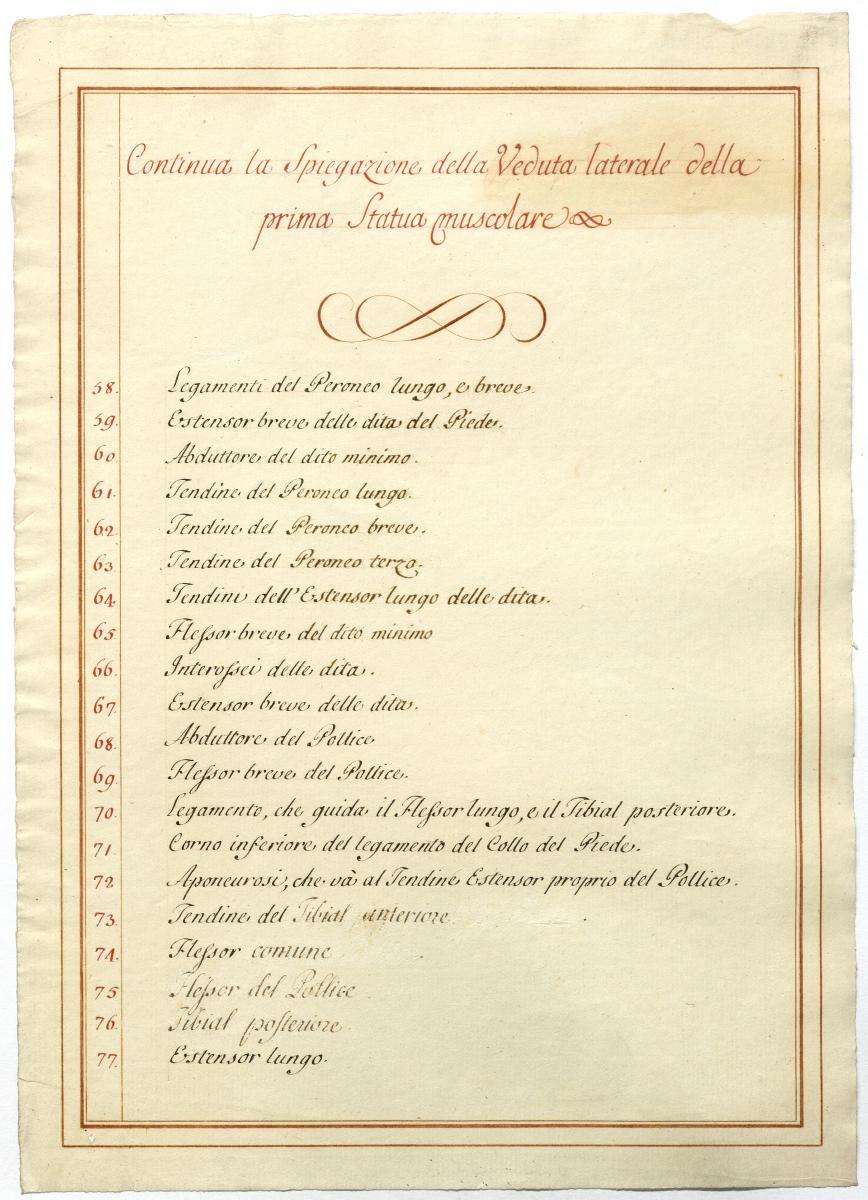 Continua la Spiegazione della Veduta laterale della
prima Statua muscolare
58. Legamenti del Peroneo lungo, e breve.
59. Estensor breve delle dita del Piede.
60. Abduttore del dito minimo.
61. Tendine del Peroneo lungo.
62. Tendine del Peroneo breve.
63. Tendine del Peroneo terzo.
64. Tendini dell'Estensor lungo delle dita.
65. Flessor breve del dito minimo
66. Interossei delle dita.
67. Estensor breve delle dita.
68. Abduttore del Pollice
69. Flessor breve del Pollice.
70. Legamento, che guida il Flessor lungo, e il Tibial posteriore.
71. Corno inferiore del legamento del Collo del Piede.
72. Aponeurosi, che và al Tendine Estensor proprio del Pollice.
73. Tendine del Tibial anteriore
74. Flessor comune
75 Flessor del Pollice
76. Tibial posteriore
77. Estensor lungo.